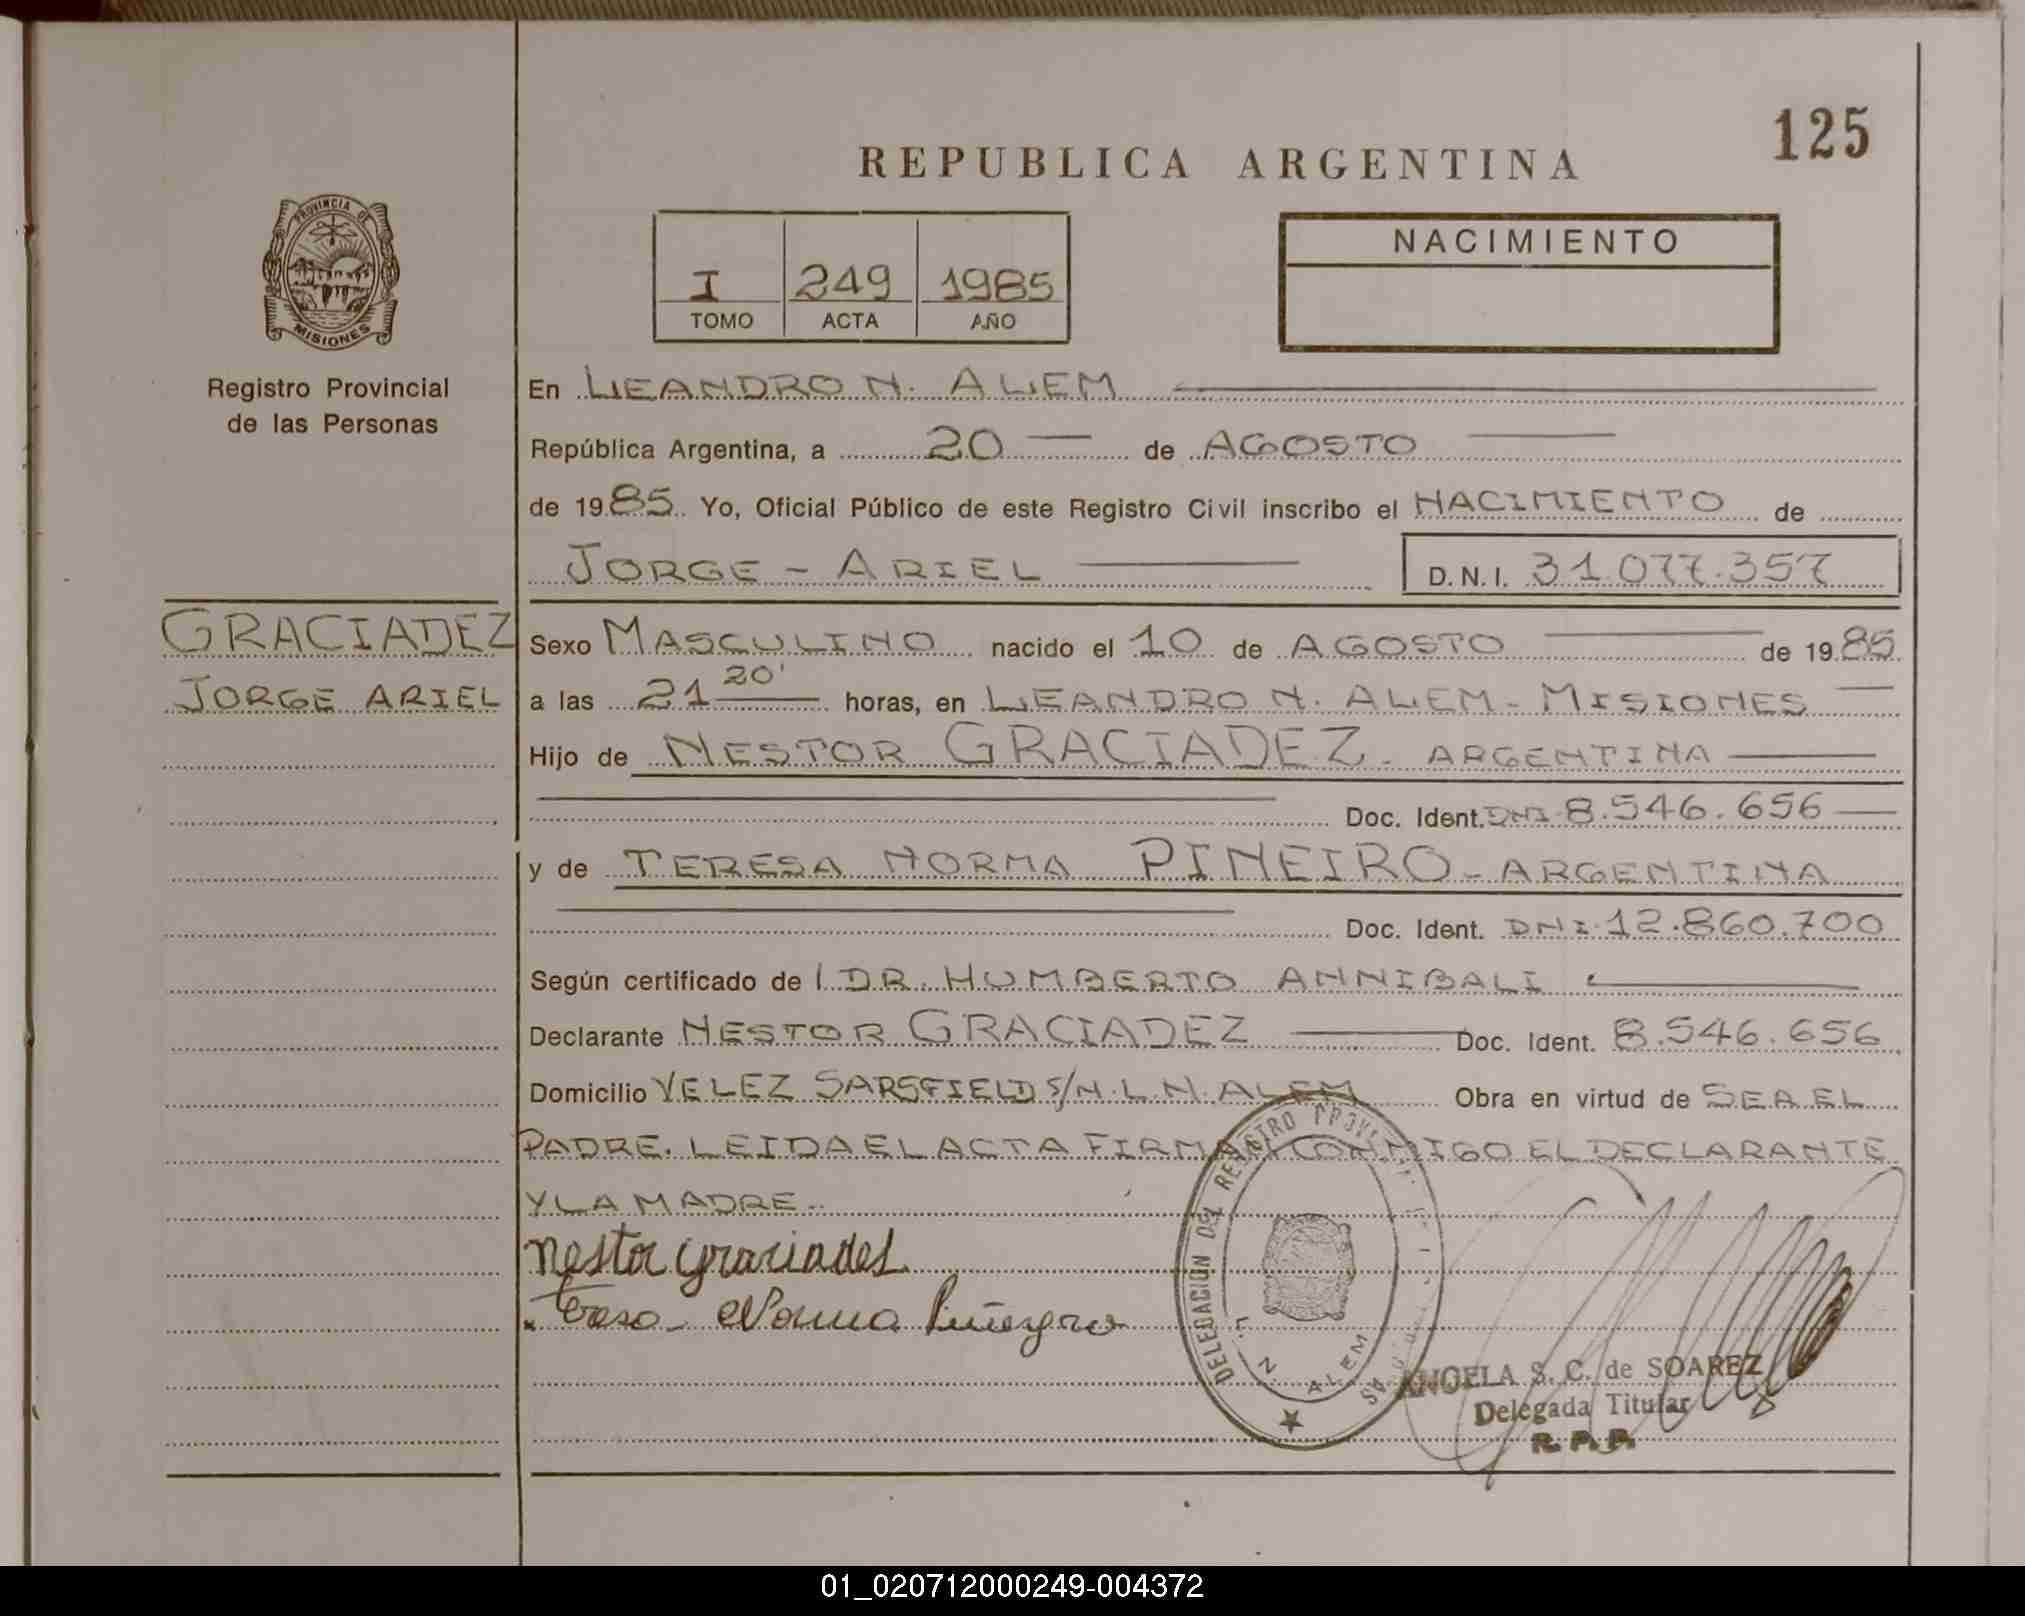 125
REPUBLICA ARGENTINA
PROVINCIA DE
MISIONES
I 249 1985
TOMO ACTA AÑO
NACIMIENTO
Registro Provincial
de las Personas
En LEANDRO N. ALEM
República Argentina, a 20 de AGOSTO
de 1985 Yo, Oficial Público de este Registro Civil inscribo el NACIMIENTO de
JORGE - ARIEL D.N.I. 31.077.357
GRACIADEZ
JORGE ARIEL
Sexo MASCULINO nacido el 10 de AGOSTO de 1985
a las 21 20' horas, en LEANDRO N. ALEM - MISIONES
Hijo de NESTOR GRACIADEZ - ARGENTINA
Doc. Ident. DNI. 8.546.656
y de TERESA NORMA PINEIRO - ARGENTINA
Doc. Ident. DNI. 12.860.700
Según certificado de l DR. HUMBERTO ANNIBALI
Declarante NESTOR GRACIADEZ Doc. Ident. 8.546.656
Domicilio VELEZ SARSFIELD S/N. L.N. ALEM Obra en virtud de SER EL
PADRE. LEIDA EL ACTA FIRMAN CONMIGO EL DECLARANTE
Y LA MADRE.
Nestor graciades
Teresa Norma
DELEGACION DEL REGISTRO
L. N. ALEM
ANGELA S. C. de SOAREZ
Delegada Titular
R. P. P.
01_020712000249-004372